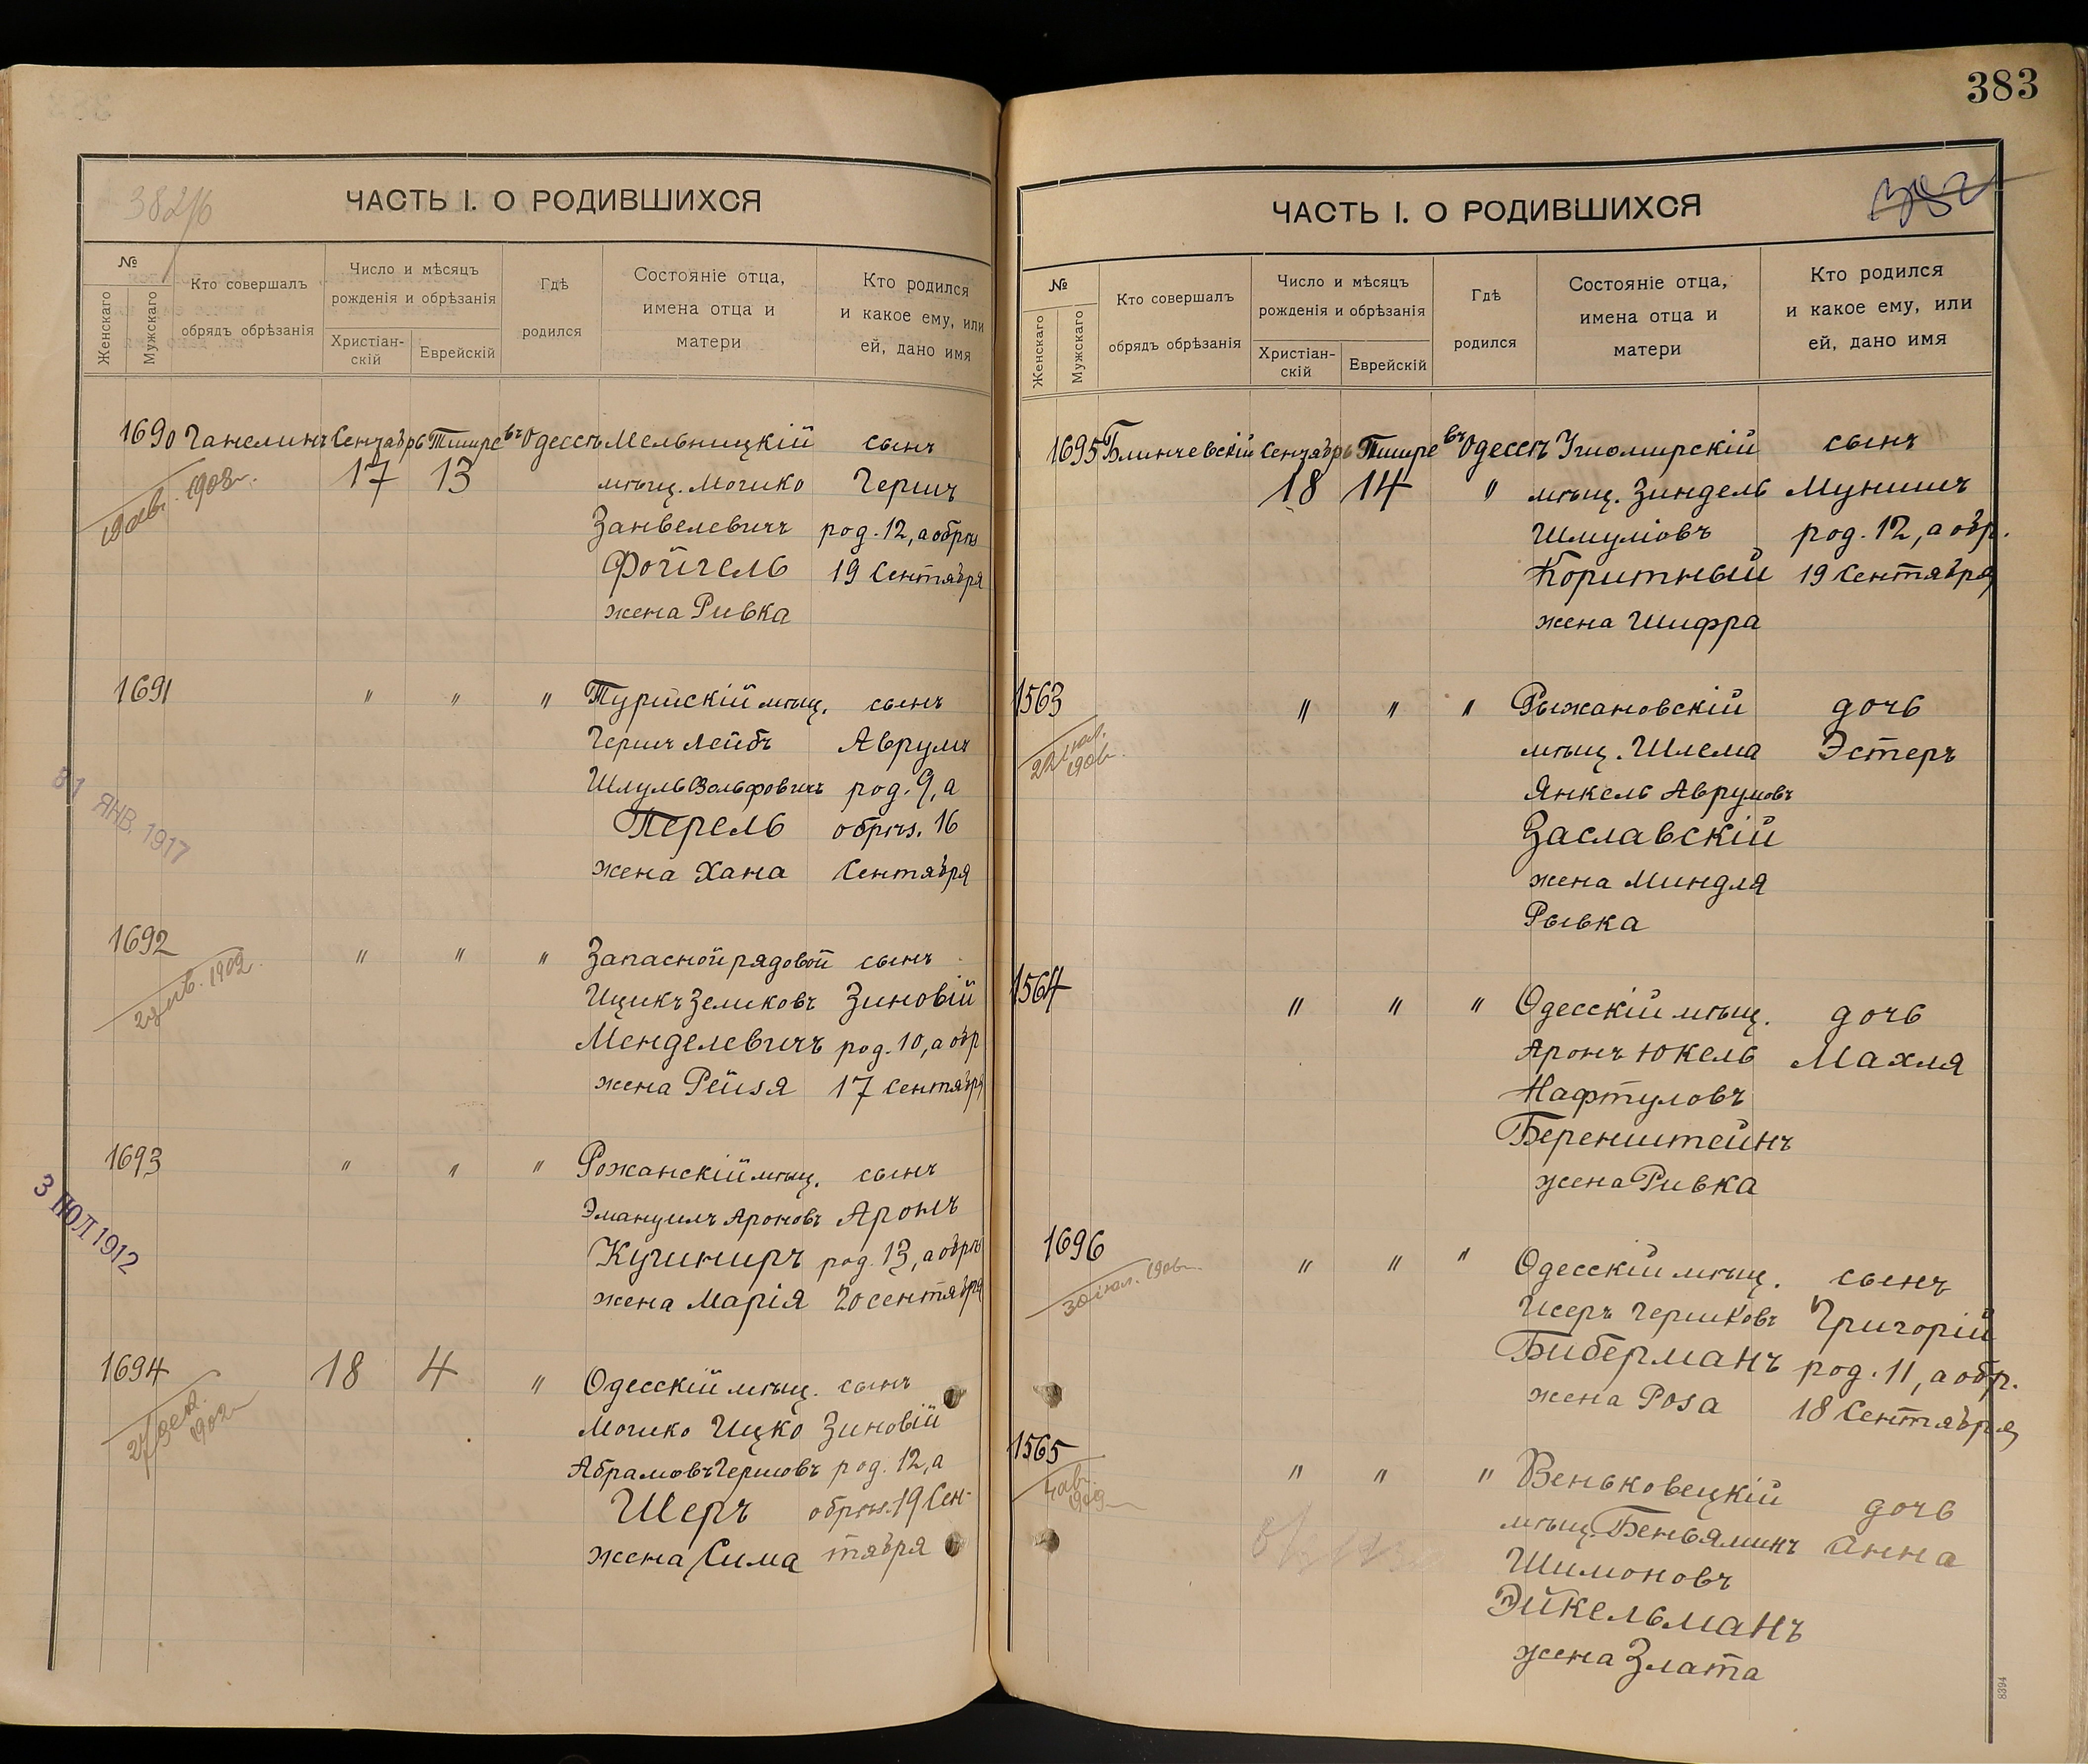 383
382/б
ЧАСТЬ I. О РОДИВШИХСЯ
№
Женскаго
Мужскаго
Кто совершалъ
обрядъ обрѣзанія
Число и мѣсяцъ
рожденія и обрѣзанія
Христіан-
скій
Еврейскій
Гдѣ
родился
Состояніе отца,
имена отца и
матери
Кто родился
и какое ему, или
ей, дано имя
1690 Ганелинъ Сентябрь Тишре въ Одессѣ Мельницкій сынъ
17 13 мѣщ. Мошко Гершъ
1903г. Занвелевичъ род. 12, а обрѣз
Фойгель 19 Сентября
жена Ривка
1691 " " " Турійскій мѣщ. сынъ
Гершъ Лейбъ Аврумъ
Шмуль Вольфовичъ род. 9, а
31 ЯНВ. 1917
Перель обрѣз. 16
жена Хана Сентября
1692 " " " Запасной рядовой сынъ
1902 Ицикъ Зеликовъ Зиновій
Менделевичъ род. 10, а обр
жена Рейзя 17 Сентября
1693 " " " Рожанскій мѣщ. сынъ
3 ІЮЛ 1912
Эмануилъ Ароновъ Аронъ
Кушниръ род. 13, а обрѣз
жена Марія 20 сентября
1694 18 4 " Одесскій мѣщ. сынъ
27 дек. 1902г Мошко Ицко Зиновій
Абрамовъ Гершовъ род. 12, а
Шеръ обрѣз. 19 Сен-
жена Сима тября
382
ЧАСТЬ I. О РОДИВШИХСЯ
№
Женскаго
Мужскаго
Кто совершалъ
обрядъ обрѣзанія
Число и мѣсяцъ
рожденія и обрѣзанія
Христіан-
скій
Еврейскій
Гдѣ
родился
Состояніе отца,
имена отца и
матери
Кто родился
и какое ему, или
ей, дано имя
1695 Блинчевскій Сентябрь Тишре въ Одессѣ Житомирскій сынъ
18 14 " мѣщ. Зиндель Мунишъ
Шмуліовъ род. 12, а обр.
Коритный 19 Сентября
жена Шифра
1563 " " " Рыжановскій дочь
мѣщ. Шлема Эстеръ
Янкель Аврумовъ
Заславскій
жена Миндля
Рывка
1564 " " " Одесскій мѣщ. дочь
Аронъ Юкель Махля
Нафтуловъ
Беренштейнъ
жена Ривка
1696 " " " Одесскій мѣщ. сынъ
30 іюл. 1906г. Исеръ Гершковъ Григорій
Биберманъ род. 11, а обр.
жена Роза 18 Сентября
1565 " " " Веньковецкій дочь
мѣщ. Беньяминъ Анна
Шимоновъ
Эйкельманъ
жена Злата
8394